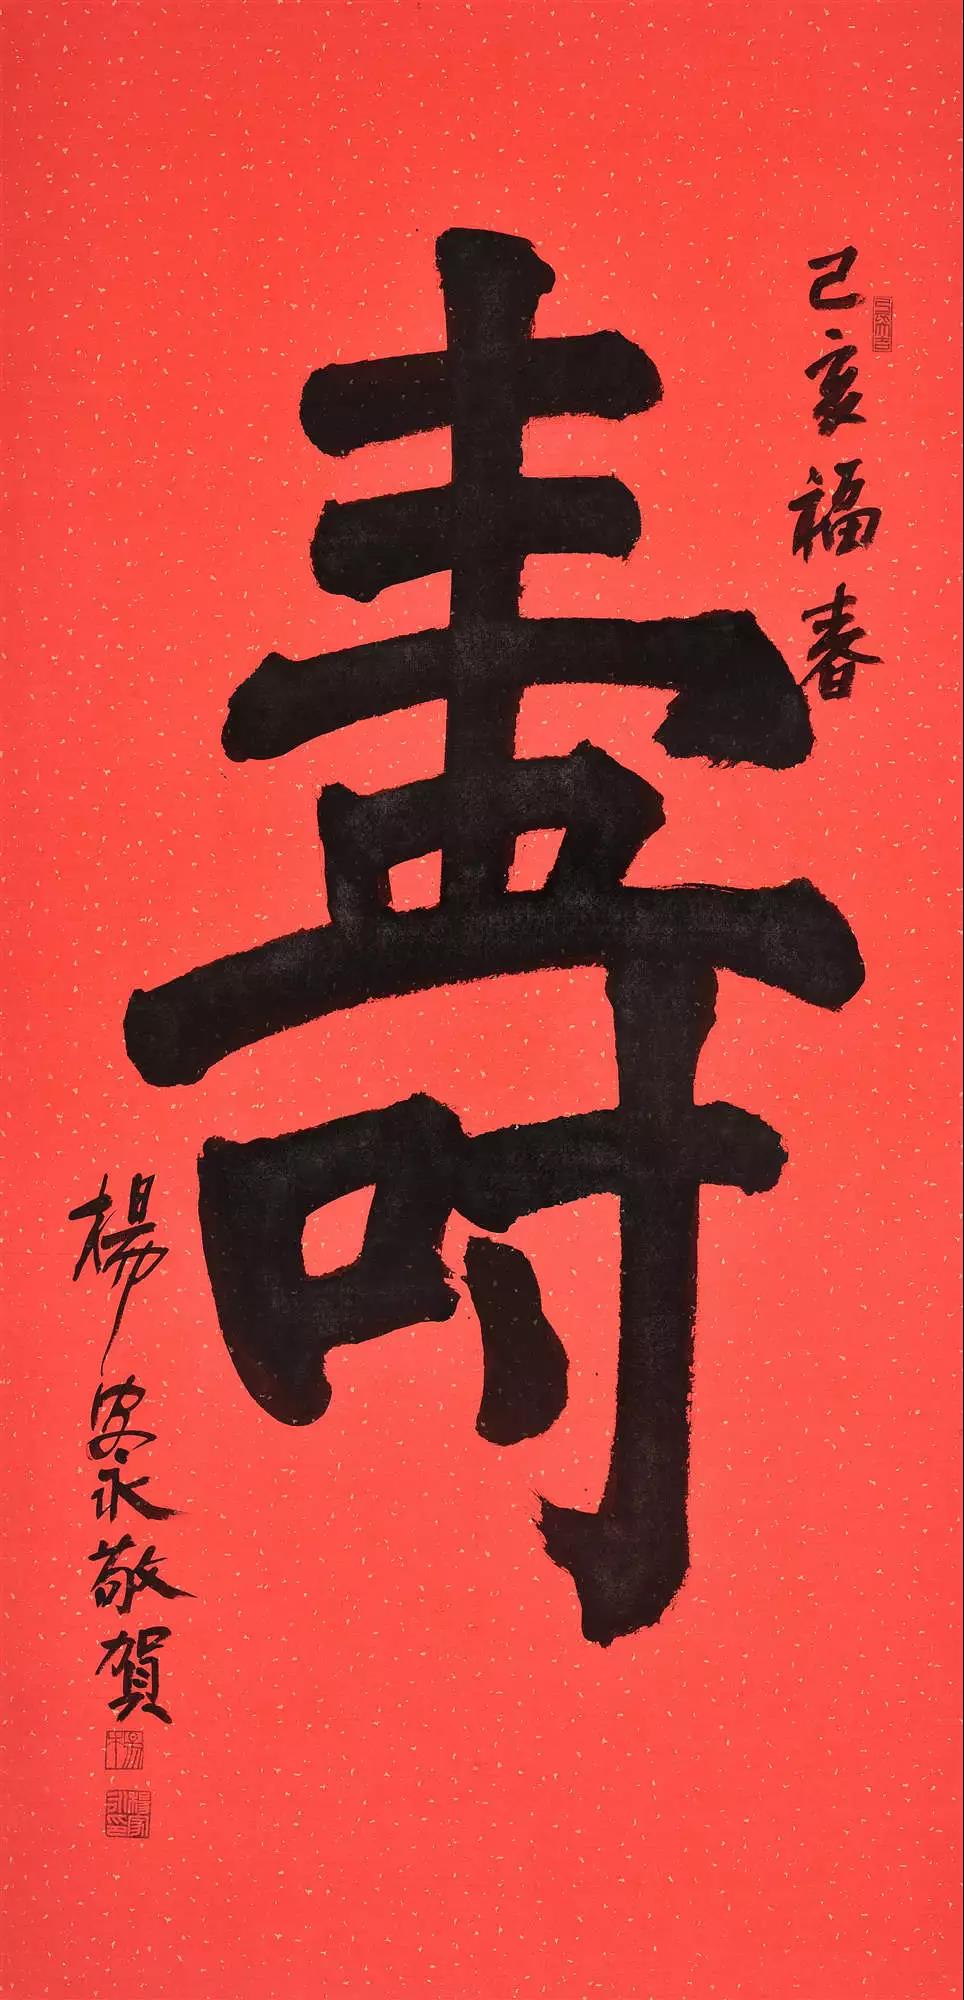 己亥福春
壽
楊家永敬賀